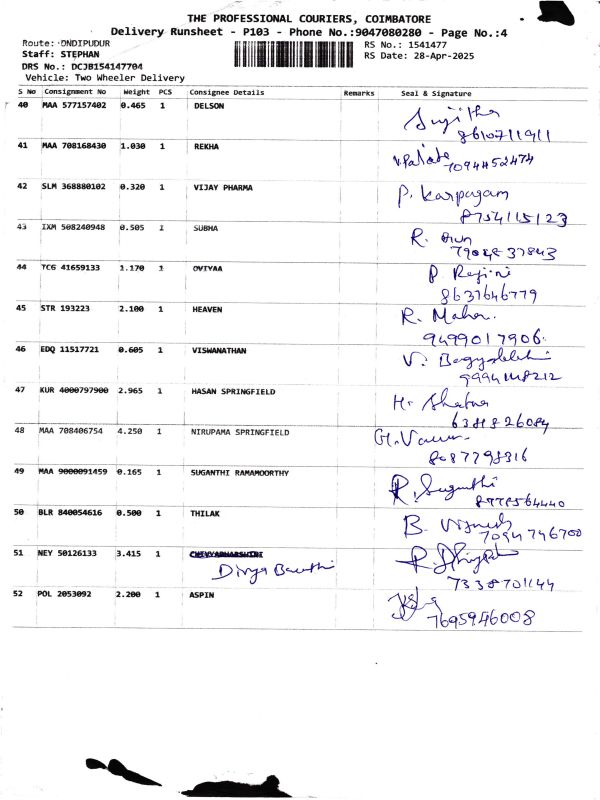 THE PROFESSIONAL COURIERS, COIMBATORE
Delivery Runsheet - P103 - Phone No.:9047080280 - Page No.:4
Route: ONDIPUDUR
RS No.: 1541477
Staff: STEPHAN
RS Date: 28-Apr-2025
DRS No.: DCJB154147704
Vehicle: Two Wheeler Delivery
S No Consignment No Weight PCS Consignee Details Remarks Seal & Signature
40 MAA 577157402 0.465 1 DELSON Sujitha
8610711911
41 MAA 708168430 1.030 1 REKHA
7094452474
42 SLM 368880102 0.320 1 VIJAY PHARMA P. Karpagam
8754115123
43 IXM 508240948 0.505 1 SUBHA R. Arun
44 TCG 41659133 1.170 1 OVIYAA P. Rejini
8637646779
45 STR 193223 2.100 1 HEAVEN R. Maha
9499017906
46 EDQ 11517721 0.605 1 VISWANATHAN V.
9994148212
47 KUR 4000797900 2.965 1 HASAN SPRINGFIELD H.
6381826084
48 MAA 708406754 4.250 1 NIRUPAMA SPRINGFIELD
8087798316
49 MAA 9000091459 0.165 1 SUGANTHI RAMAMOORTHY R. Suganthi
50 BLR 840054616 0.500 1 THILAK B. Vignesh
7094746700
51 NEY 50126133 3.415 1
Divya Barathi
7338701144
52 POL 2053092 2.200 1 ASPIN
7695946008